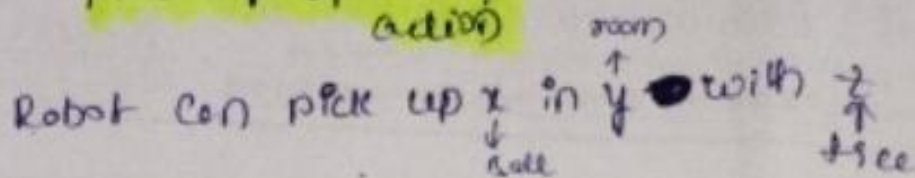 action
room
↑
Robot can pick up x in y with z
↓
Ball